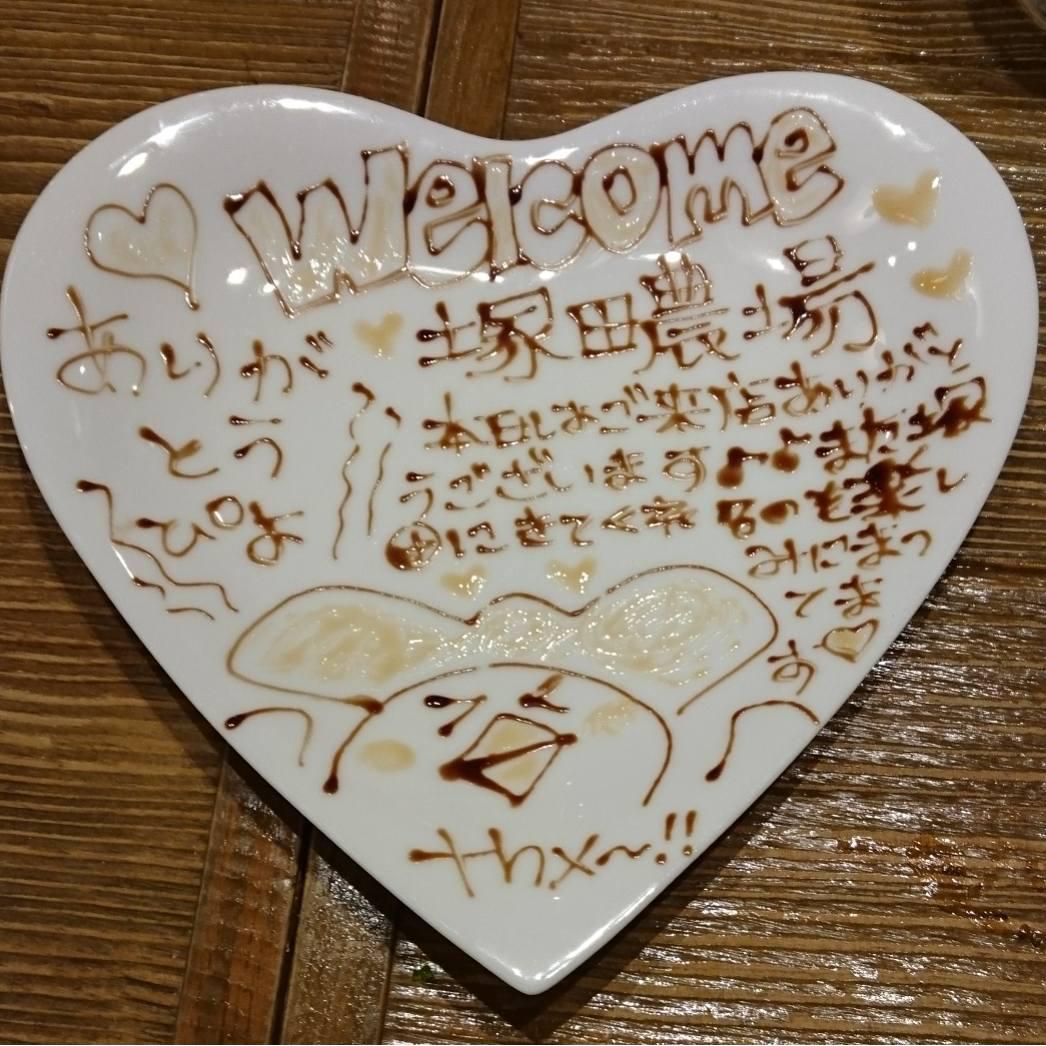 Welcome
塚田農場
ありが
とう
ぴよ
本日はご来店ありがと
うございます♪♪また塚
田にきてくださるのを楽し
みにまっ
てま
す♡
thx~!!